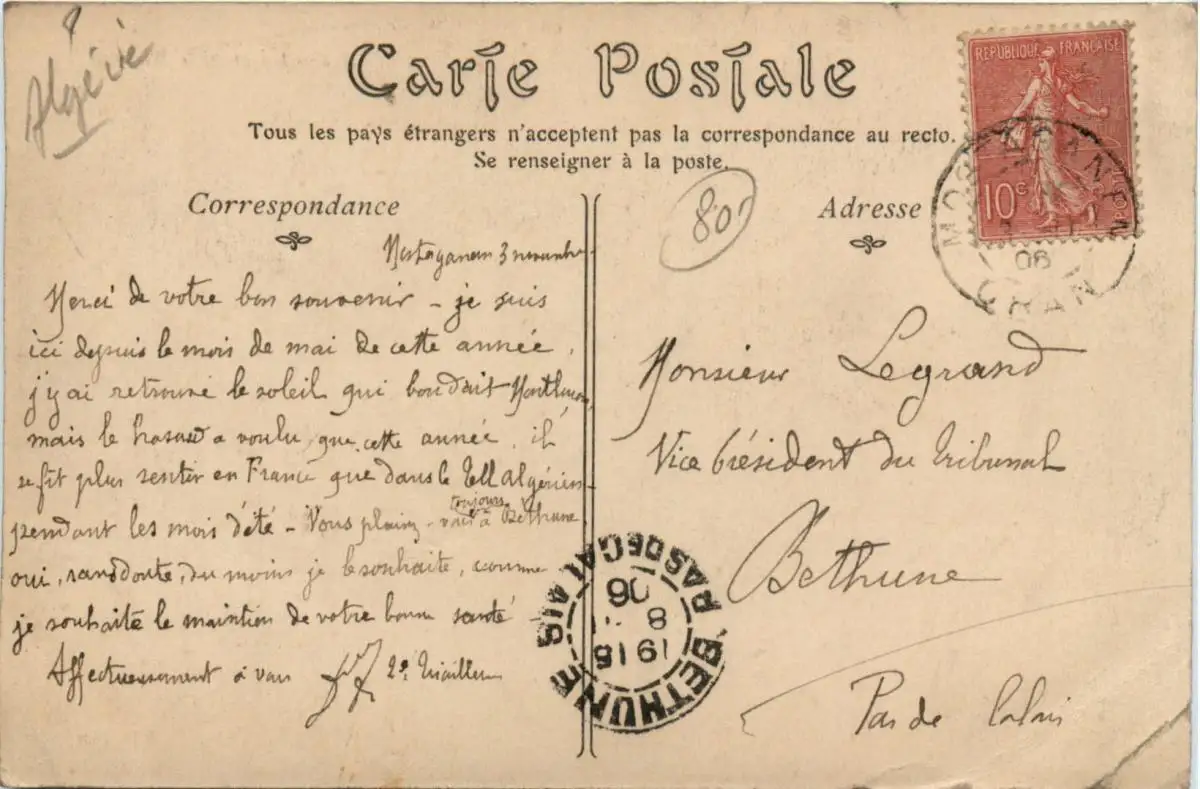 Algérie
Carte Postale
Tous les pays étrangers n'acceptent pas la correspondance au recto.
Se renseigner à la poste.
Correspondance
Adresse
80
RÉPUBLIQUE FRANÇAISE
10c
POSTES
MOSTAGANEM
06
ORAN
Mostaganem 3 novembre
Merci de votre bon souvenir - je suis
ici depuis le mois de mai de cette année,
j'y ai retrouvé le soleil qui boudait
mais le hasard a voulu que cette année, il
se fit plus sentir en France que dans le Tell algérien
pendant les mois d'été - Vous plairez-vous toujours à Béthune
oui, sans doute, du moins je le souhaite, comme
je souhaite le maintien de votre bonne santé
Affectueusement à vous
Monsieur Legrand
Vice Président du Tribunal
Bethune
Pas de Calais
BETHUNE PAS DE CALAIS
19 15
8
06